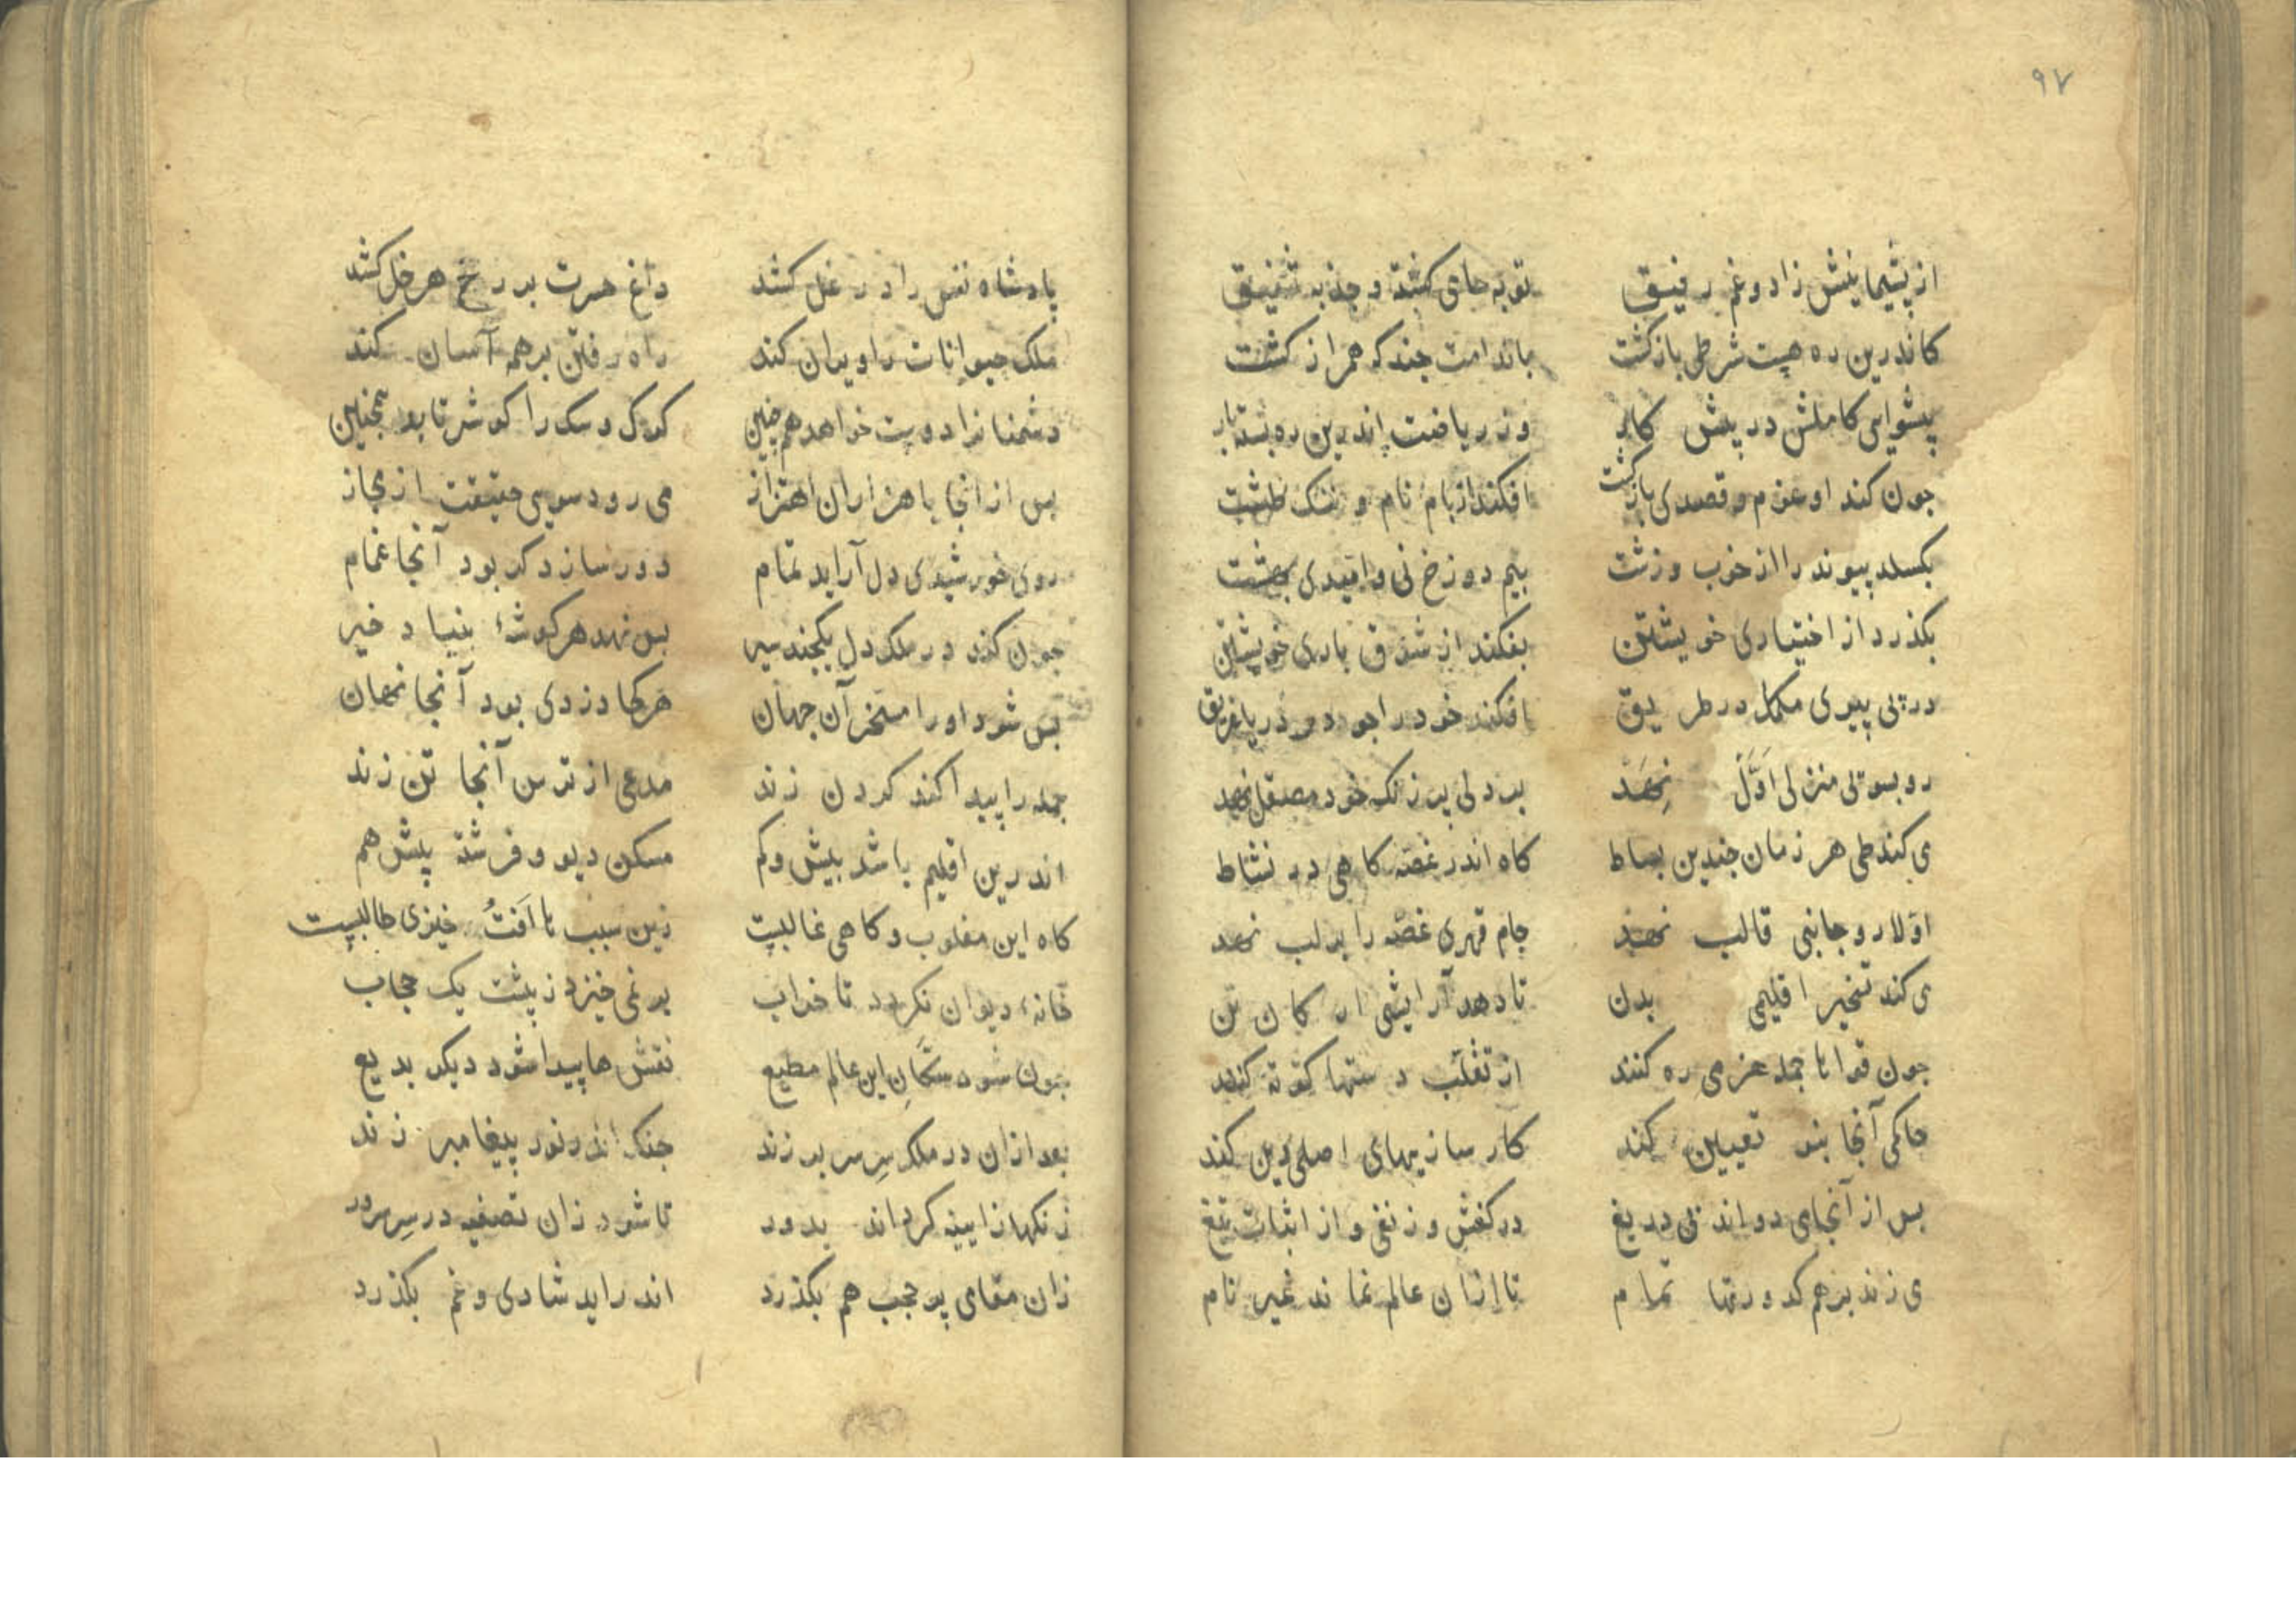 ۹۷
از پشیمانیش زاد و غم رفیق توبه حامی کشته و جذبه شفیق
کاندرین ره هست شرطی بازکشت باندامت چندکه همراز کشت
پیشوایی کاملش در پیش کار وز ریاضت اندرین ره بسته بار
جون کند او عزم و قصدی بازکشت افکند از بام نام و ننک طشت
بکسلد پیوند را از خوب و زشت بیم دوزخ نی و امیدی بهشت
بکذرد از اختیاری خویشتن بفکند از شوق باری خویشتن
در پی پیری مکمل در طریق افکند خود را جو در دریا غریق
رو بسوئی منزلی اَوَّلْ نِهَدْ بر دلی پر زنک خود مصقل نهد
می کند طی هر زمان جندین بساط کاه اندر غصّه کاهی در نشاط
اوّلا رو جانبی قالب نهد جام قهری غصّه را بر لب نهد
می کند تسخیر اقلیمی بدن تا دهد آرایشی ارکان تن
جون قوا نا جمله عزمی ره کنند از تغلّب دستها کوته کنند
حاکمی آنجا بنو تعیین کند کار سازیهای اصلی دین کند
بس از آنجا می دواند نی دریغ در کفش وز نفی و از اثبات تیغ
می زند برهم کدورتها تمام تا ازان عالم نماند غیر نام
پادشاه نفس را در غل کشد داغ حسرت بر رخ هر خل کشد
ملک حیوانات را ویران کند راه رفتن بر همه آسان کند
دشمنانرا دوست خواهد همچنین کودک و سک را کوشر تابد همچنین
بس از انجا با هزاران اهتزاز می رود سوی حقیقت از مجاز
روی خورشیدی دل آراید تمام دور سازد کر بود آنجا غمام
جون کند در ملک دل یکچند سیر بس نهد هر کوشهٔ بنیاد خیر
بس شود اورا مسخر آن جهان هرکجا دزدی بود آنجا نهان
جمله را پیدا کند کردن زند مدعی از ترس آنجا تن زند
اندرین اقلیم باشد بیش و کم مسکن دیو و فرشته پیش هم
کاه این مغلوب و کاهی غالبست زین سبب نا اَفتُ خیزی طالبیست
خانهٔ دیوان نکردد تا خراب بر نمی خیزد ز پشت یک حجاب
جون شود سکّانِ این عالم مطیع نقش ها پیدا شود دیکر بدیع
بعد ازان در ملک سِر سر بر زند جنک اندر نور پیغامبر زند
زنکها ز ایینه کرداند بدور تا شود زان تصفیه در سِر سرور
زان مقامی پر حجب هم بکذرد اندر اید شادی و غم بکذرد